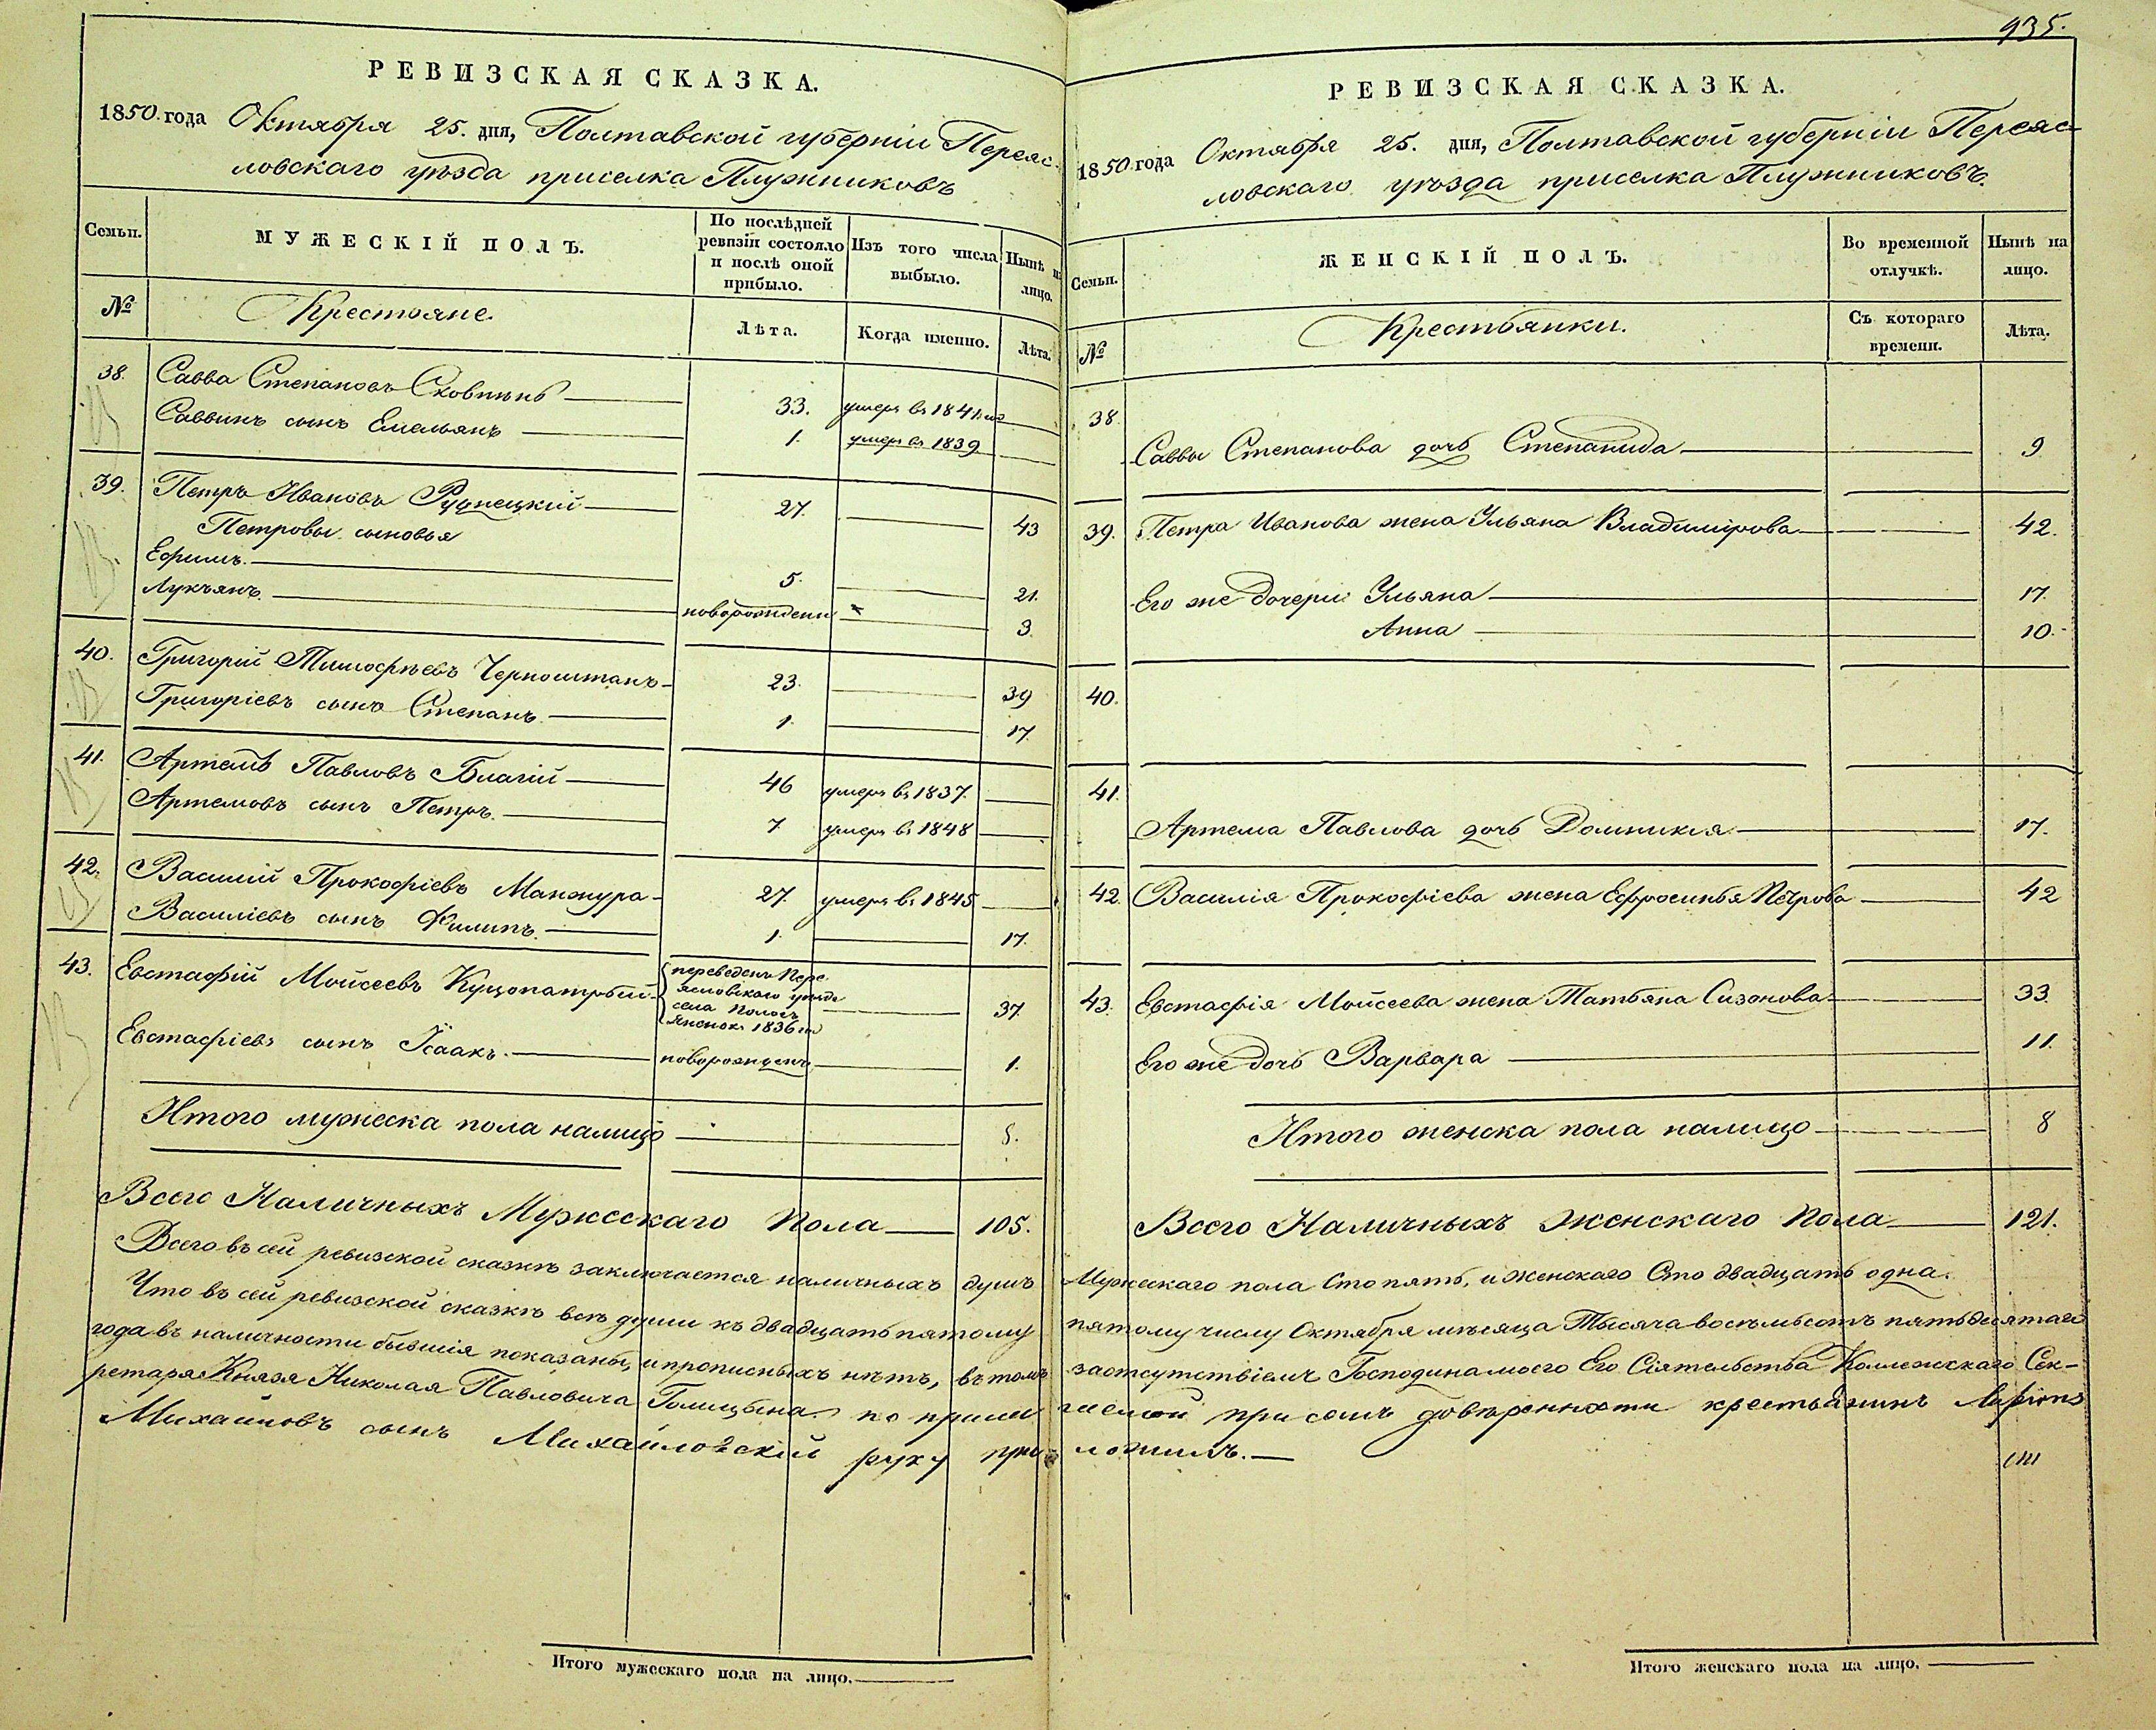 РЕВИЗСКАЯ СКАЗКА.
1850. года Октября 25. дня, Полтавской губерніи Переяс-
ловскаго уѣзда приселка Плужниковъ
Семьи.
МУЖЕСКІЙ ПОЛЪ.
По послѣдней ревизіи состояло и послѣ оной прибыло.
Изъ того числа выбыло.
Нынѣ на лицо.
№
Крестояне.
Лѣта.
Когда именно.
Лѣта.
38. Савва Степановъ 33. умеръ въ 1841. го
Саввинъ сынъ Емельянъ 1. умеръ въ 1839
39. Петръ Ивановъ Руднецкій 27. 43
Петровы сыновья
Ефимъ. 5. 21.
Лукъянъ. новорожденъ 3.
40. Григорій Тимофѣевъ Черноштанъ 23. 39
Григоріевъ сынъ Степанъ. 1. 17.
41. Артемъ Павловъ Благій 46 умеръ въ 1837.
Артемовъ сынъ Петръ. 7. умеръ въ 1848
42. Василій Прокофіевъ Манжура 27. умеръ въ 1845
Василіевъ сынъ Филипъ. 1. 17.
43. Евстафій Мойсеевъ
переведенъ Пере-
ясловскаго уѣзда
села
1836 го
37.
Евстафіевъ сынъ Ісаакъ. новорожденъ 1.
Итого мужеска пола налицо
Всего Наличныхъ Мужескаго Пола 105.
Всего въ сей ревизской сказкѣ заключается наличныхъ душъ
Что въ сей ревизской сказкѣ всѣ души къ двадцать пятому
года въ наличности бывшія показаны, и прописныхъ нѣтъ, въ томъ
ретаря Князя Николая Павловича Голицына по
Михайловъ сынъ Михайловскій руку при-
Итого мужескаго пола на лицо.
935.
РЕВИЗСКАЯ СКАЗКА.
1850. года Октября 25. дня, Полтавской губерніи Переяс-
ловскаго уѣзда приселка Плужниковъ.
Семьи.
ЖЕНСКІЙ ПОЛЪ.
Во временной отлучкѣ.
Нынѣ на лицо.
№
Крестьянки.
Съ котораго времени.
Лѣта.
38.
Саввы Степанова дочь Степанида 9
39. Петра Иванова жена Ульяна Владимірова 42.
Его же дочери: Ульяна 17.
Анна 10.
40.
41.
Артема Павлова дочь Домникія 17.
42. Василія Прокофіева жена Ефросинья Петрова 42
43. Евстафія Мойсеева жена Татьяна Сизонова 33.
Его же дочь Варвара 11.
Итого женска пола налицо 8
Всего Наличныхъ Женскаго Пола 121.
Мужескаго пола Сто пять, и женскаго Сто двадцать одна.
пятому числу Октября мѣсяца Тысяча восемьсотъ пятьдесятаго
за отсутствіемъ Господина моего Его Сіятельства Коллежскаго Сек-
при семъ довѣренности крестьянинъ
ложилъ.
Итого женскаго пола на лицо.